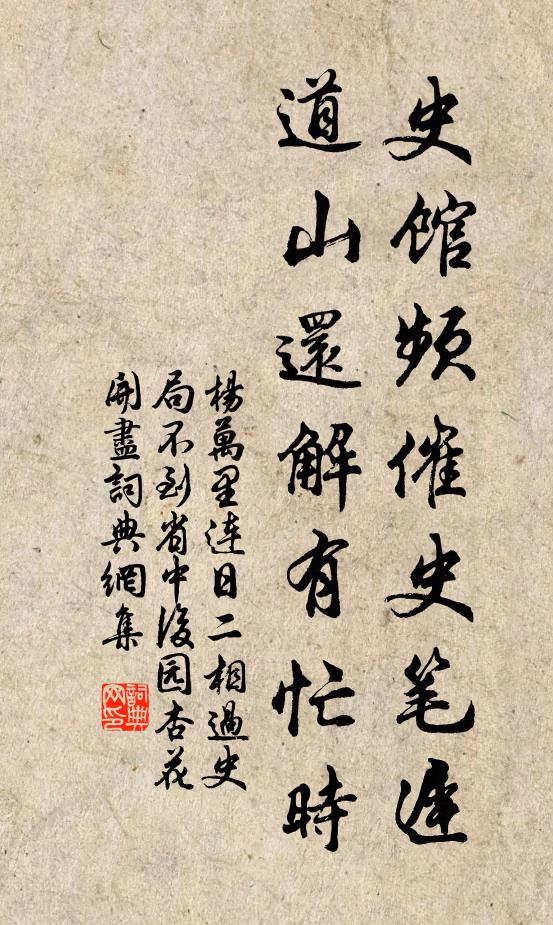 史馆頻催史笔遲
道山還解有忙時
楊萬里连日二相過史
局不到省中後园杏花
開盡詞典網集
詞典网印